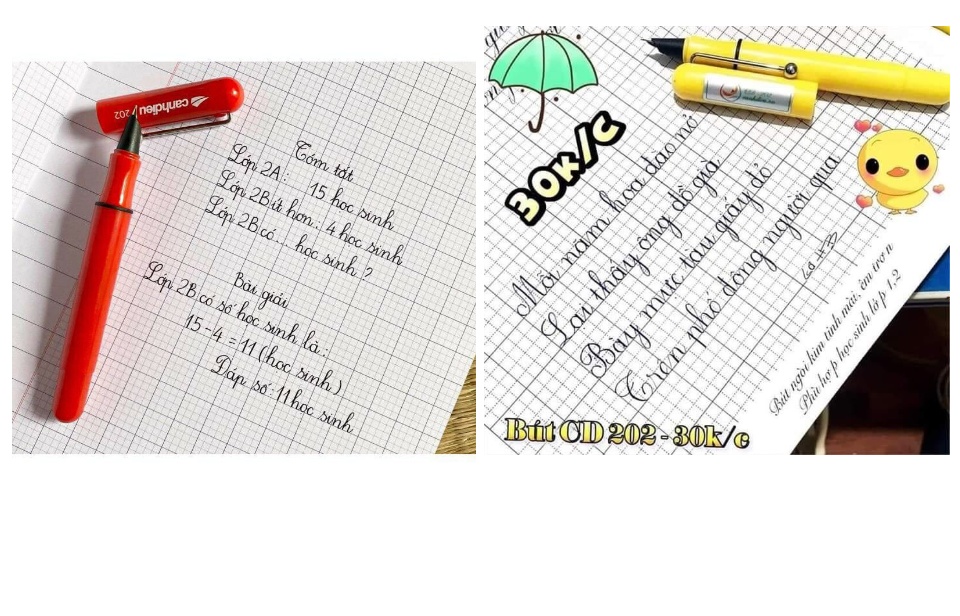 canhdieu
202
Tóm tắt
Lớp 2A: 15 học sinh
Lớp 2B ít hơn: 4 học sinh
Lớp 2B có... học sinh?
Bài giải
Lớp 2B có số học sinh là:
15 - 4 = 11 (học sinh)
Đáp số: 11 học sinh
30K/C
Mỗi năm hoa đào nở
Lại thấy ông đồ già
Bày mực tàu giấy đỏ
Trên phố đông người qua
Bút ngòi kim tinh mài, êm trơn
Phù hợp học sinh lớp 1,2
Bút CD 202 - 30k/c